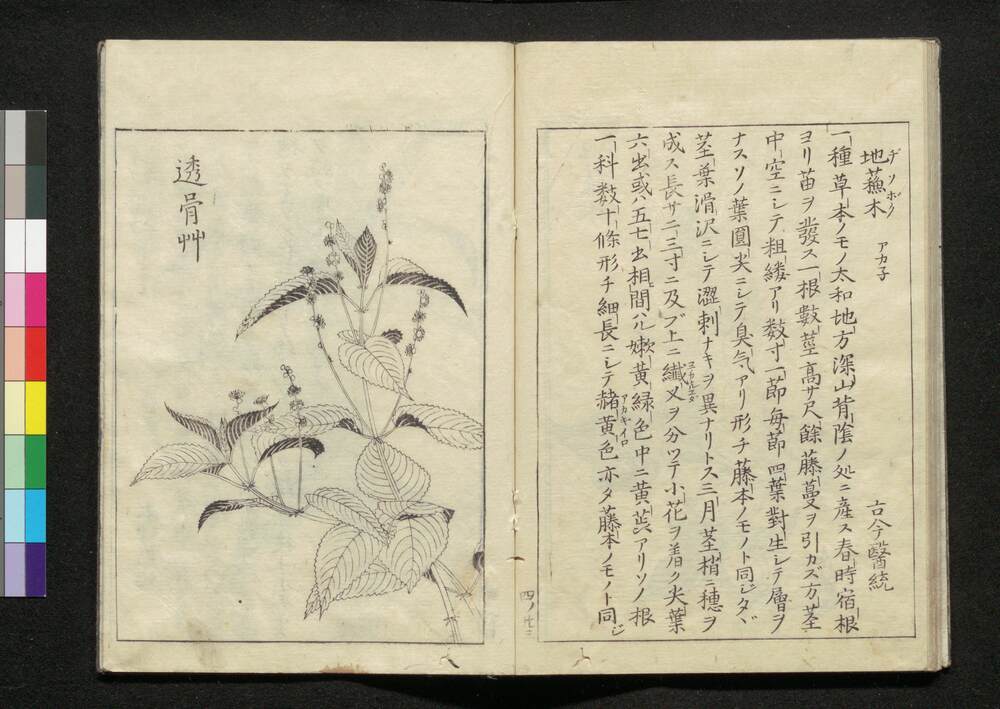 地蘓木 ヂソボク アカ子 古今醫統
一種草本ノモノ太和地方深山背陰ノ処ニ産ス春時宿根
ヨリ苗ヲ發ス一根數莖高サ尺餘藤蔓ヲ引カズ方莖
中空ニシテ粗縷アリ数寸一節毎節四葉對生シテ層ヲ
ナスソノ葉圓尖ニシテ臭気アリ形チ藤本ノモノト同ジタヾ
莖葉滑沢ニシテ澀刺ナキヲ異ナリトス三月莖梢ニ穂ヲ
成ス長サ二三寸ニ及ブ上ニ纎叉ヲ分ツテ小花ヲ着ク尖葉
六出或ハ五七出相間ハル嫩黄緑色中ニ黄蕋アリソノ根
一科数十條形チ細長ニシテ赭黄色アカキイロ亦タ藤本ノモノト同ジ
四ノ廿三
透骨艸